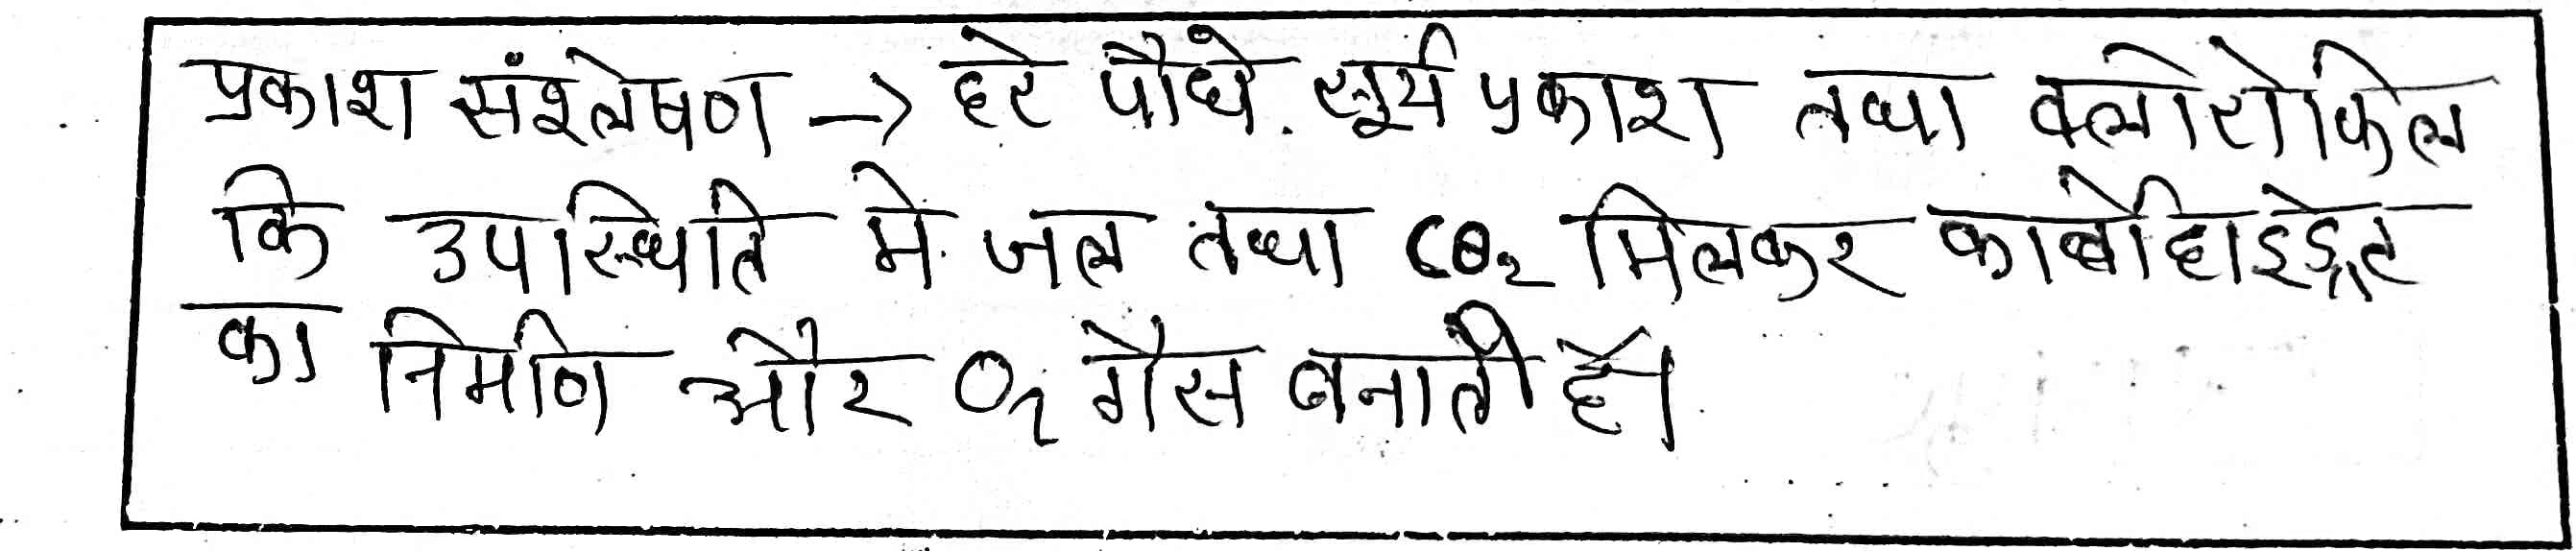 प्रकाश संश्लेषण -> हरे पौधे. सूर्य प्रकाश तथा क्लोरोफिल
कि उपस्थिति मे जल तथा CO₂ मिलकर कार्बोहाइड्रेट
का निर्माण और O₂ गैस बनाती है।